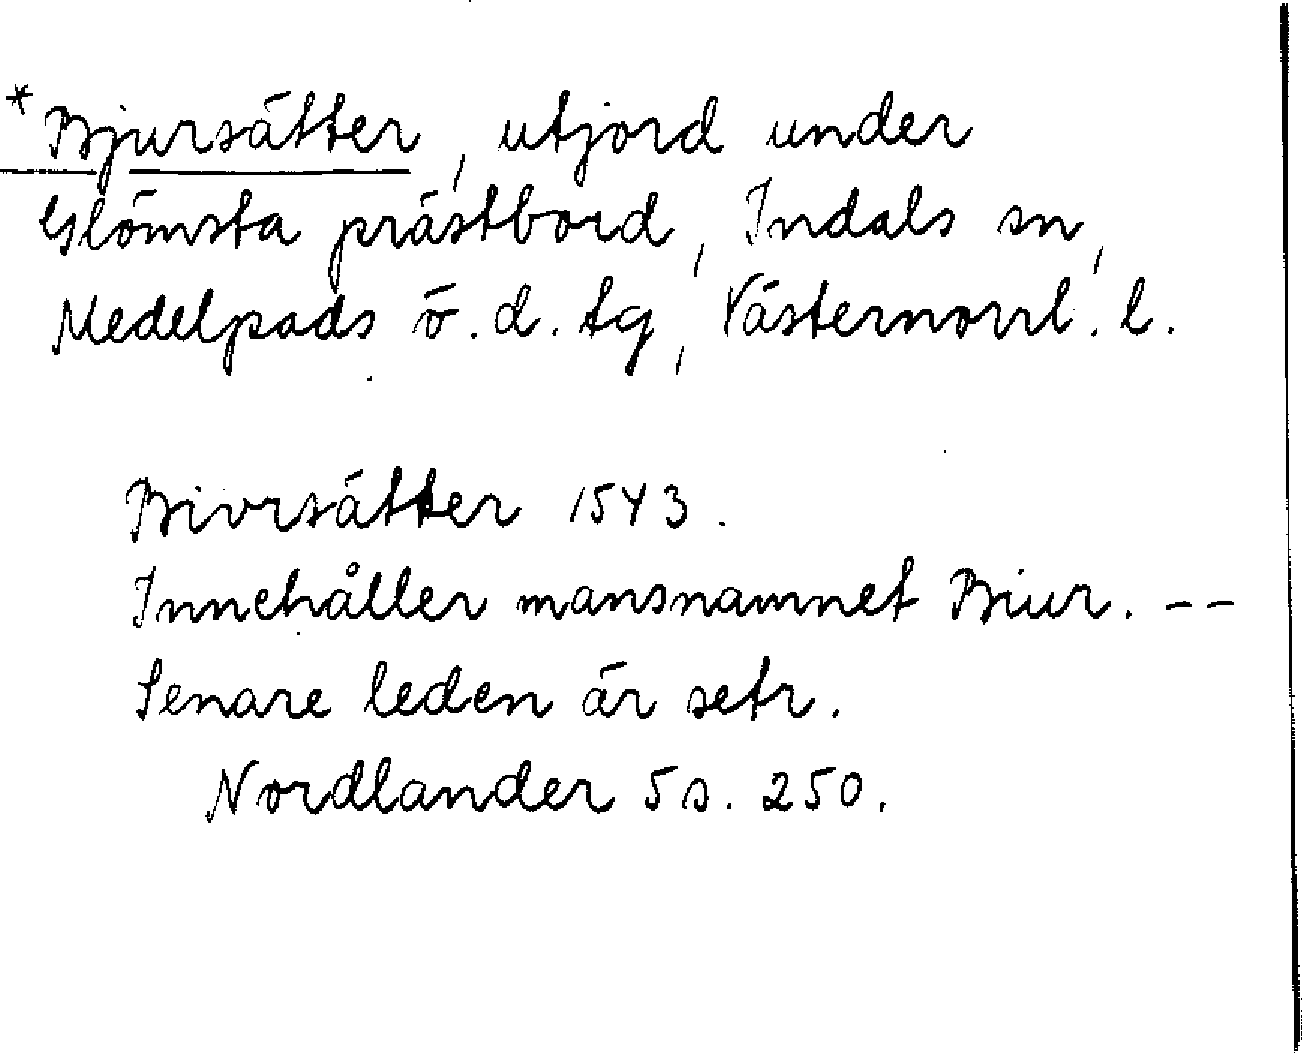 *Bjursätter, utjord under
Glömsta prästbord, Indals sn,
Medelpads ö. d. tg, Västernorrl. l.
Bivrsätter 1543.
Innehåller mansnamnet Biur. --
Senare leden är setr.
Nordlander 5 s. 250.